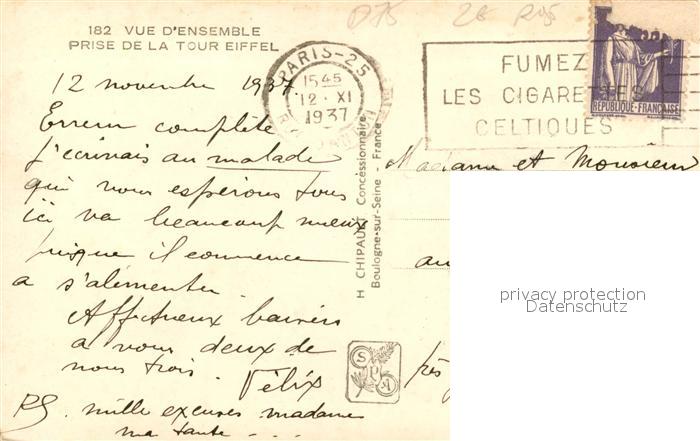 182 VUE D'ENSEMBLE
PRISE DE LA TOUR EIFFEL
D75
2€
PARIS-25
1545
12 · XI
1937
FUMEZ
LES CIGARETTES
CELTIQUES
RÉPUBLIQUE-FRANÇAISE
12 novembre 1937.
Erreur complète
j'écrivais au malade
qui nous espérons tous
ici va beaucoup mieux
puisque il commence
a s'alimenter.
Affectueux baisers
a vous deux de
nous trois. Félix
PS. mille excuses madame
ma tante - - -
H CHIPAULT Concessionnaire
Boulogne-sur-Seine - France
Madame et Monsieur
au
près
privacy protection
Datenschutz